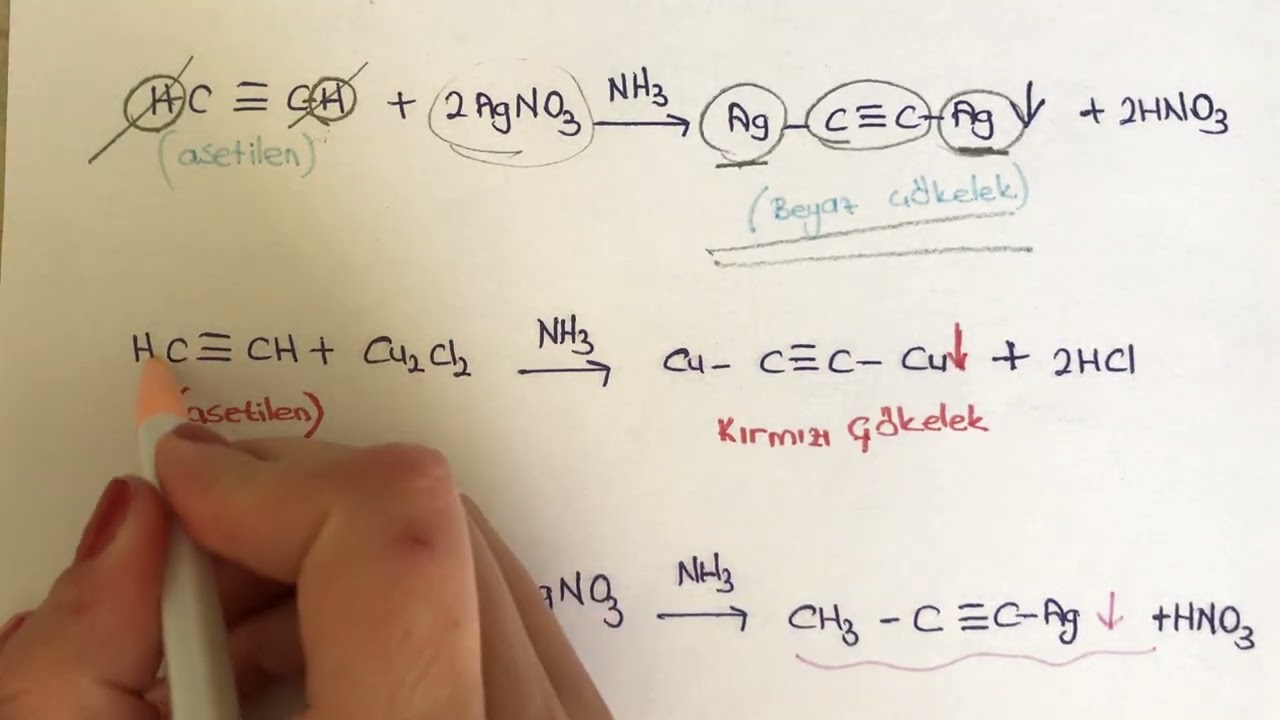 HC ≡ CH + 2AgNO₃ NH₃→ Ag – C≡C – Ag ↓ + 2HNO₃
(asetilen)
(Beyaz çökelek)
HC≡CH + Cu₂Cl₂ NH₃→ Cu – C≡C – Cu↓ + 2HCl
(asetilen)
Kırmızı çökelek
NO₃ NH₃→ CH₃ – C≡C–Ag ↓ +HNO₃